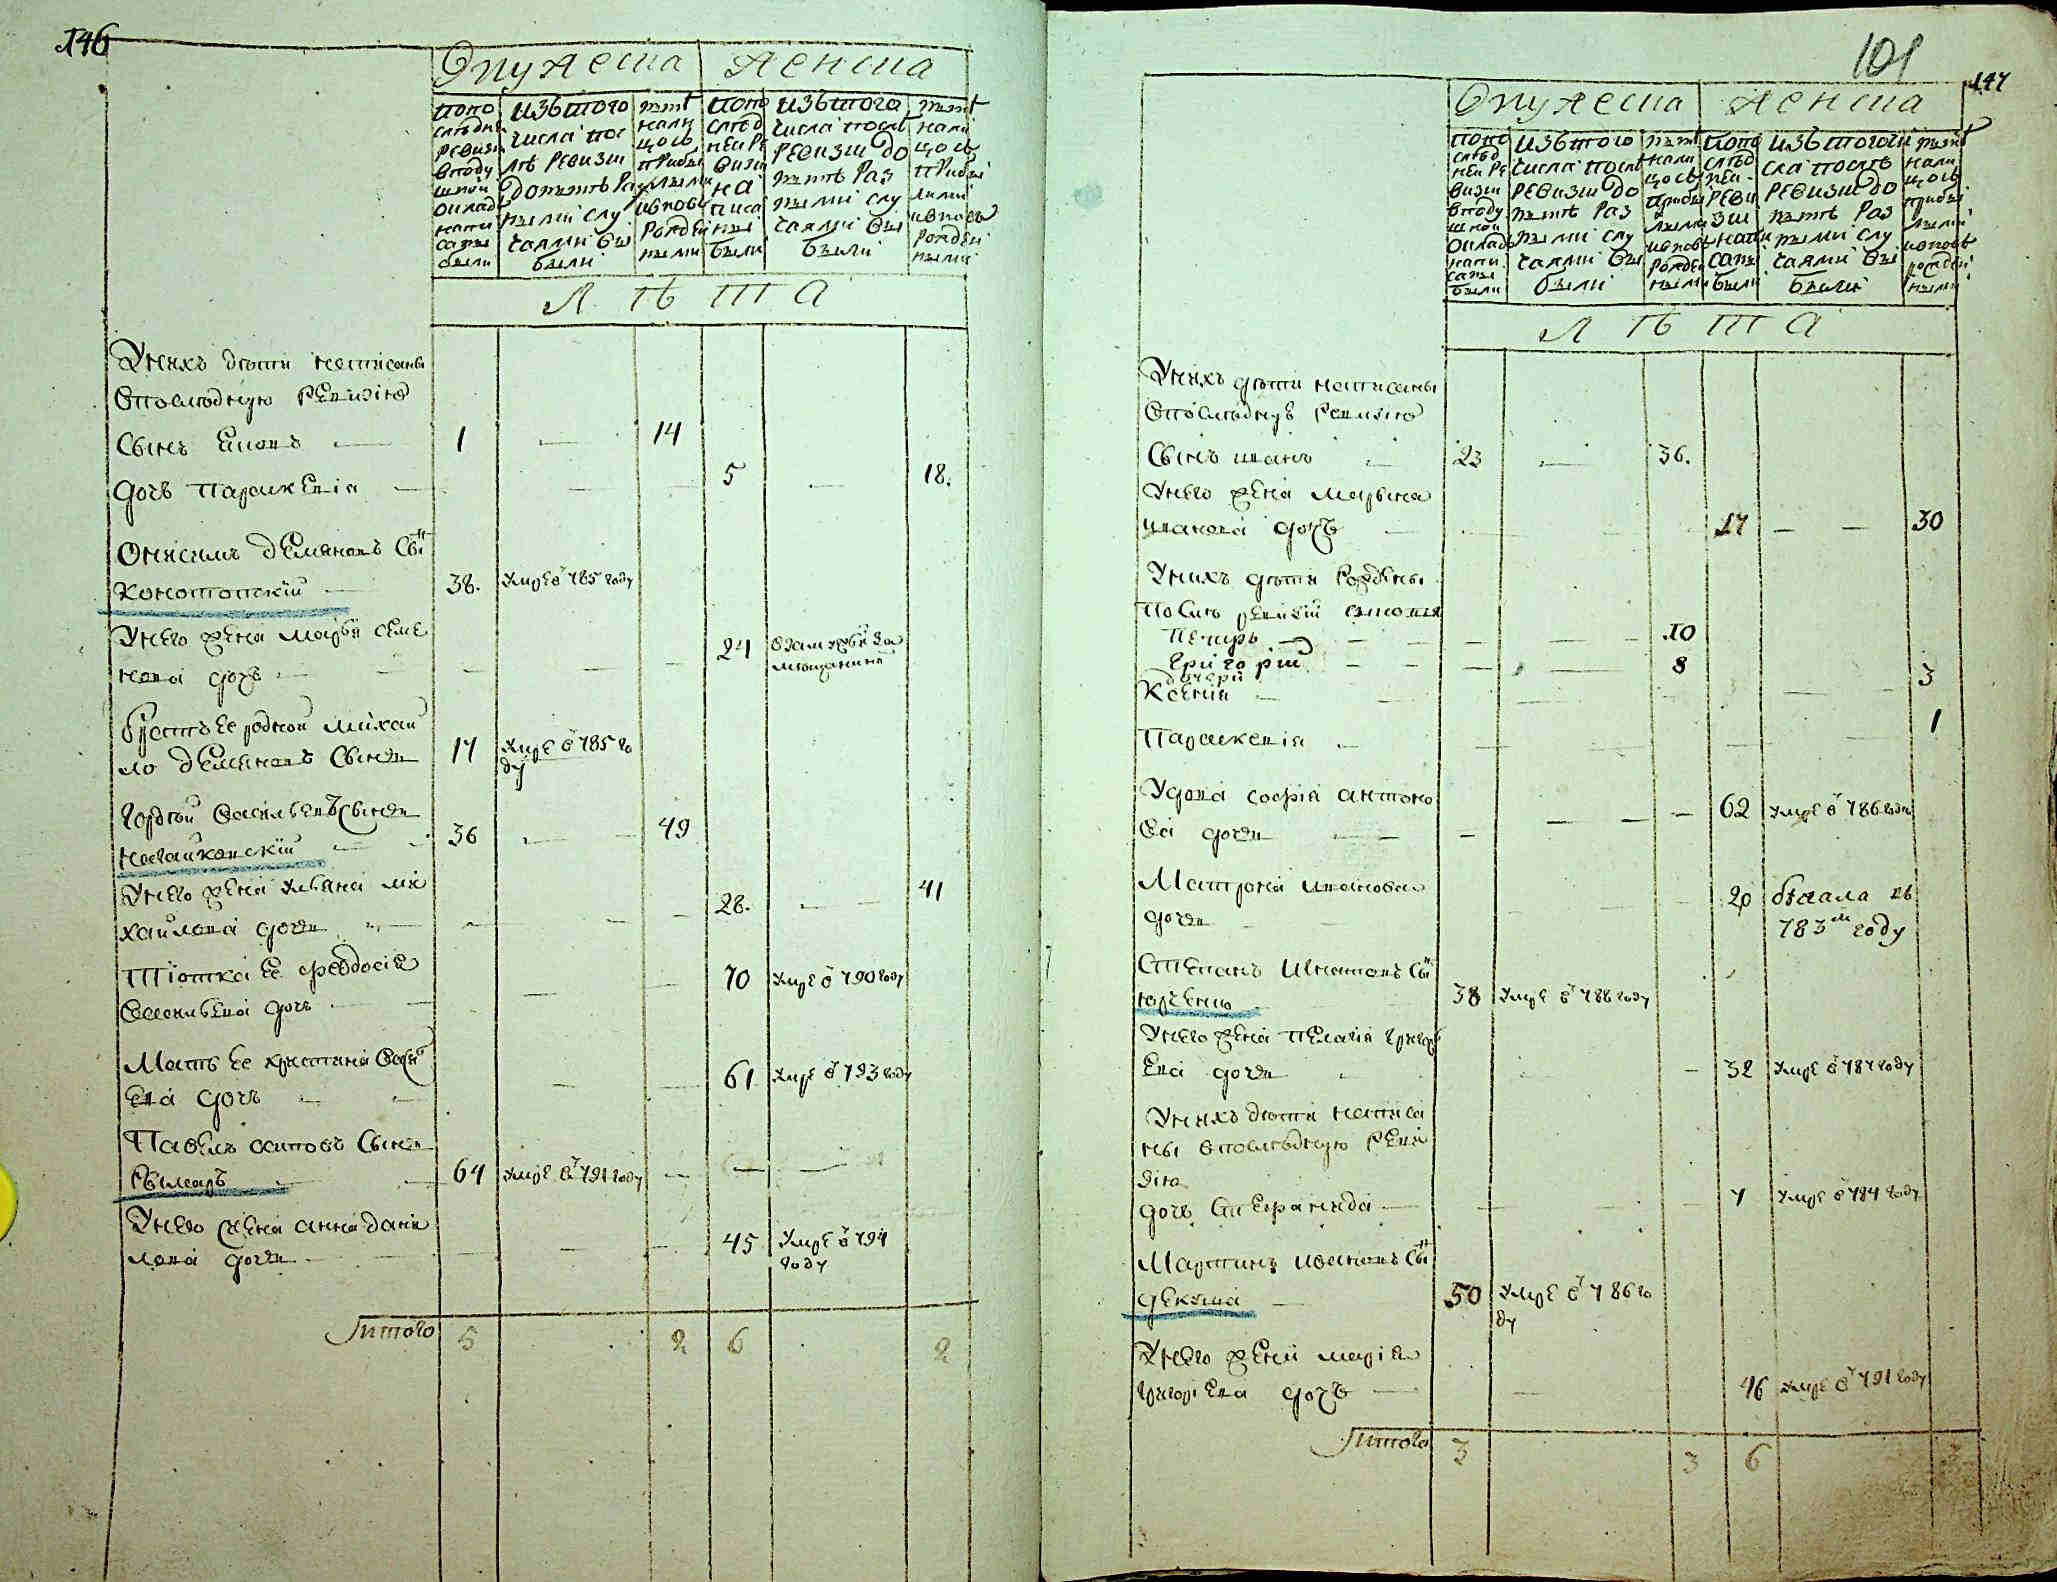 146
Ѻ мужеска
женска
По по
следней
ревизи
в поду
шной
окладъ
напи
саны
были
изъ того
числа пос
лѣ ревизіи
до нынѣ раз
ными слу
чаями вы
были
нынѣ
нали
цо съ
прибы
лыми
и вновь
рожден
ными
по по
след
ней ре
визи
на
писа
ны
были
изъ того
числа послѣ
ревизіи до
нынѣ раз
ными слу
чаями вы
были
нынѣ
нали
цо съ
прибы
лыми
и вновь
рожден
ными
Л ѣ т а
У нихъ дѣти написаны
в последную ревизію
Сынъ 1 14
дочь Параскевія 5 18.
Онисимъ Демяновъ сынъ
Конотопскій 38. умре в 785 году
У него жена Марья Семе
нова дочь 24
Братъ ее родной Михай
ло Демяновъ сынъ 17 умре в 785 го
ду
Гордей Васильевъ сынъ
36 49
У него жена Ульяна Ми
хайлова дочь 28. 41
Тіотка ее Феодосія
Васильева дочь 70 умре в 790 году
Мать ее Христина
ева дочь 61 умре в 793 году
Павелъ Осиповъ сынъ
Рымарь 64 умре в 791 году
У него жена Анна Дани
лова дочь 45 умре в 794
году
Итого 5 2 6 2
101
147
мужеска
женска
по по
след
ней ре
визи
в поду
шной
окладъ
напи
саны
были
изъ того
числа послѣ
ревизіи до
нынѣ раз
ными слу
чаями вы
были
нынѣ
нали
цо съ
прибы
лыми
и вновь
рожден
ными
по по
след
ней
реви
зіи
напи
саны
были
изъ того чи
сла послѣ
ревизіи до
нынѣ раз
ными слу
чаями вы
были
нынѣ
нали
цо съ
прибы
лыми
и вновь
рожден
ными
Л ѣ т а
У нихъ дѣти написаны
в последную ревизію
Сынъ Иванъ 23 36.
У него жена Марина
Иванова дочь 17 30
У нихъ дѣти рождены
после ревизіи сыновья
Петръ 10
Григорій 8
дочери
Ксенія 3
Параскевія 1
Удова Софія Антоно
ва дочь 62 умре в 786 году
Матрона Иванова
дочь 20 бежала въ
783м году
Степанъ Игнатовъ сынъ
Юрченко 38 умре в 788 году
У него жена Пелагія Григорь
ева дочь 32 умре в 787 году
У нихъ дѣти написа
ны в последную реви
зію
дочь 7 умре в 784 году
Мартинъ Ивановъ сынъ
Декуша 50 умре в 786 го
ду
У него жена Марія
Григорьева дочь 46 умре в 791 году
Итого 3 3 6